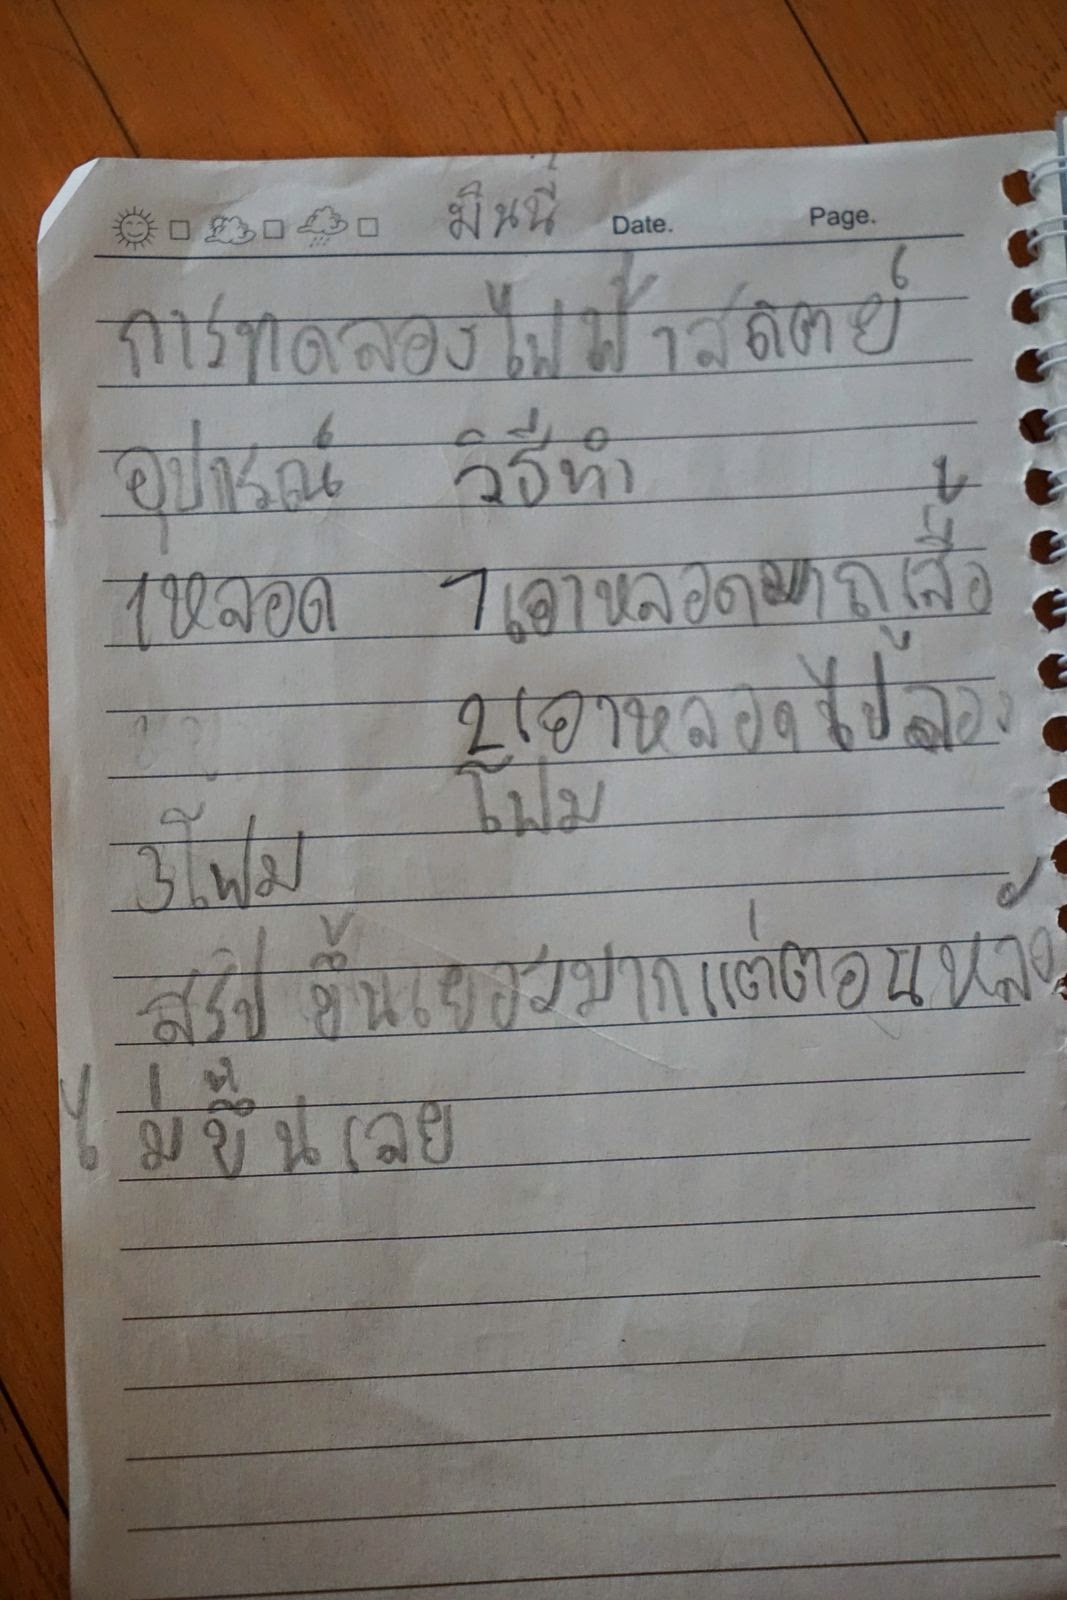 มินนี่ Date. Page.
การทดลองไฟฟ้าสถิตย์
อุปกรณ์ วิธีทำ
1หลอด 1เอาหลอดมาถูเสื้อ
2เอาหลอดไปลอง
โฟม
3โฟม
สรุป ขึ้นเยอะมากแต่ตอนหลัง
ไม่ขึ้นเลย